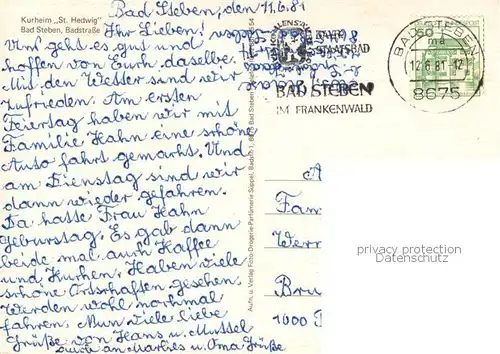 Kurheim „St. Hedwig"
Bad Steben, Badstraße
Bad Steben, den 11.6.81
Ihr Lieben!
Uns geht es gut und
hoffen von Euch daselbe.
Mit den Wetter sind wir
zufrieden. Am ersten
Feiertag haben wir mit
Familie Hahn eine schöne
Auto fahrt gemacht. Und
am Dienstag sind wir
dann wieder gefahren.
Da hatte Frau Hahn
Geburtstag. Es gab dann
beide mal auch Kaffee
und Kuchen. Haben viele
schöne Ortschaften gesehen.
Werden wohl nochmal
fahren. Nun viele liebe
Grüße von Hans u. Muttel
auch an Marlies u. Oma Grüße
Aufn. u. Verlag Foto-Drogerie-Parfümerie Süppel, Badstr. 1, 8675 Bad Steben
JAHRE
STAATSBAD
BAD STEBEN
IM FRANKENWALD
BAD STEBEN
12.6.81-12
8675
60
A
Fam
Wern
Bru
1000
privacy protection
DSGVO, GDPR